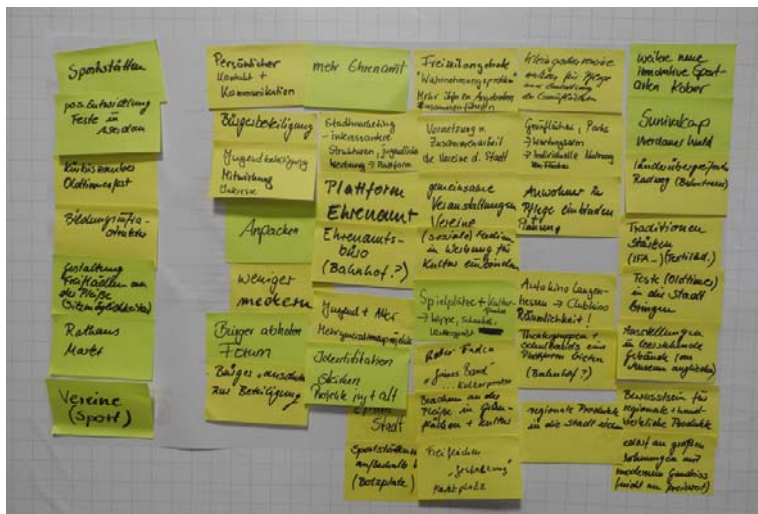 Sportstätten
pos. Entwicklung
Feste in
Oldtimerfest
Bildungsinfra-
struktur
Gestaltung
Freiflächen an
der Pleiße
(Sitzmöglichkeiten)
Rathaus
Markt
Vereine
(Sport)
Persönlicher
Kontakt +
Kommunikation
Bürgerbeteiligung
Jugendbeteiligung
Mitwirkung
Interesse
Anpacken
weniger
meckern
Bürger abholen
Forum
zur Beteiligung
mehr Ehrenamt
Stadtmarketing
- interessantere
Strukturen, jugendliche
Werbung → Plattform
Plattform
Ehrenamt
Ehrenamts-
büro
(Bahnhof?)
Jugend + Alter
Mehrgenerationenprojekte
Identifikation
Stärken
Projekte jung + alt
Stadt
Sportstätten
außerhalb
(Bolzplätze)
"Wahrnehmungsproblem"
Mehr Info zu Angeboten
zusammenführen
Vernetzung u.
Zusammenarbeit
der Vereine d. Stadt
gemeinsame
Veranstaltungen
Vereine
(soziale) Medien
in Werbung für
Kultur einbinden
Spielplätze +
→ Wippe, Schaukel,
Roter Faden
"grünes Band"
Pleiße in Grün-
flächen + Kultur
Freiflächen
"Gestaltung"
Marktplatz
für Pflege
Grünflächen, Parks
→ Wartungsarm
→ Individuelle Nutzung
von Flächen
Anwohner in
Pflege einbinden
Planung
Autokino Langen-
hessen → Clubkino
Räumlichkeit!
Theatergruppen +
Schulbands eine
Plattform bieten
(Bahnhof?)
regionale Produkte
in die Stadt
weitere neue
innovative Sport-
arten
Survivalcup
Werdauer Wald
länderübergreifender
Radweg (Bahntrasse)
Traditionen
Stärken
(IFA-) (Textilind.)
Feste (Oldtimer)
in die Stadt
bringen
Ausstellungen
in leerstehende
Gebäude (an
Museum angliedern)
Bewusstsein für
regionale + hand-
werkliche Produkte
Bedarf an großen
Wohnungen mit
modernem Grundriss
(nicht nur preiswert)